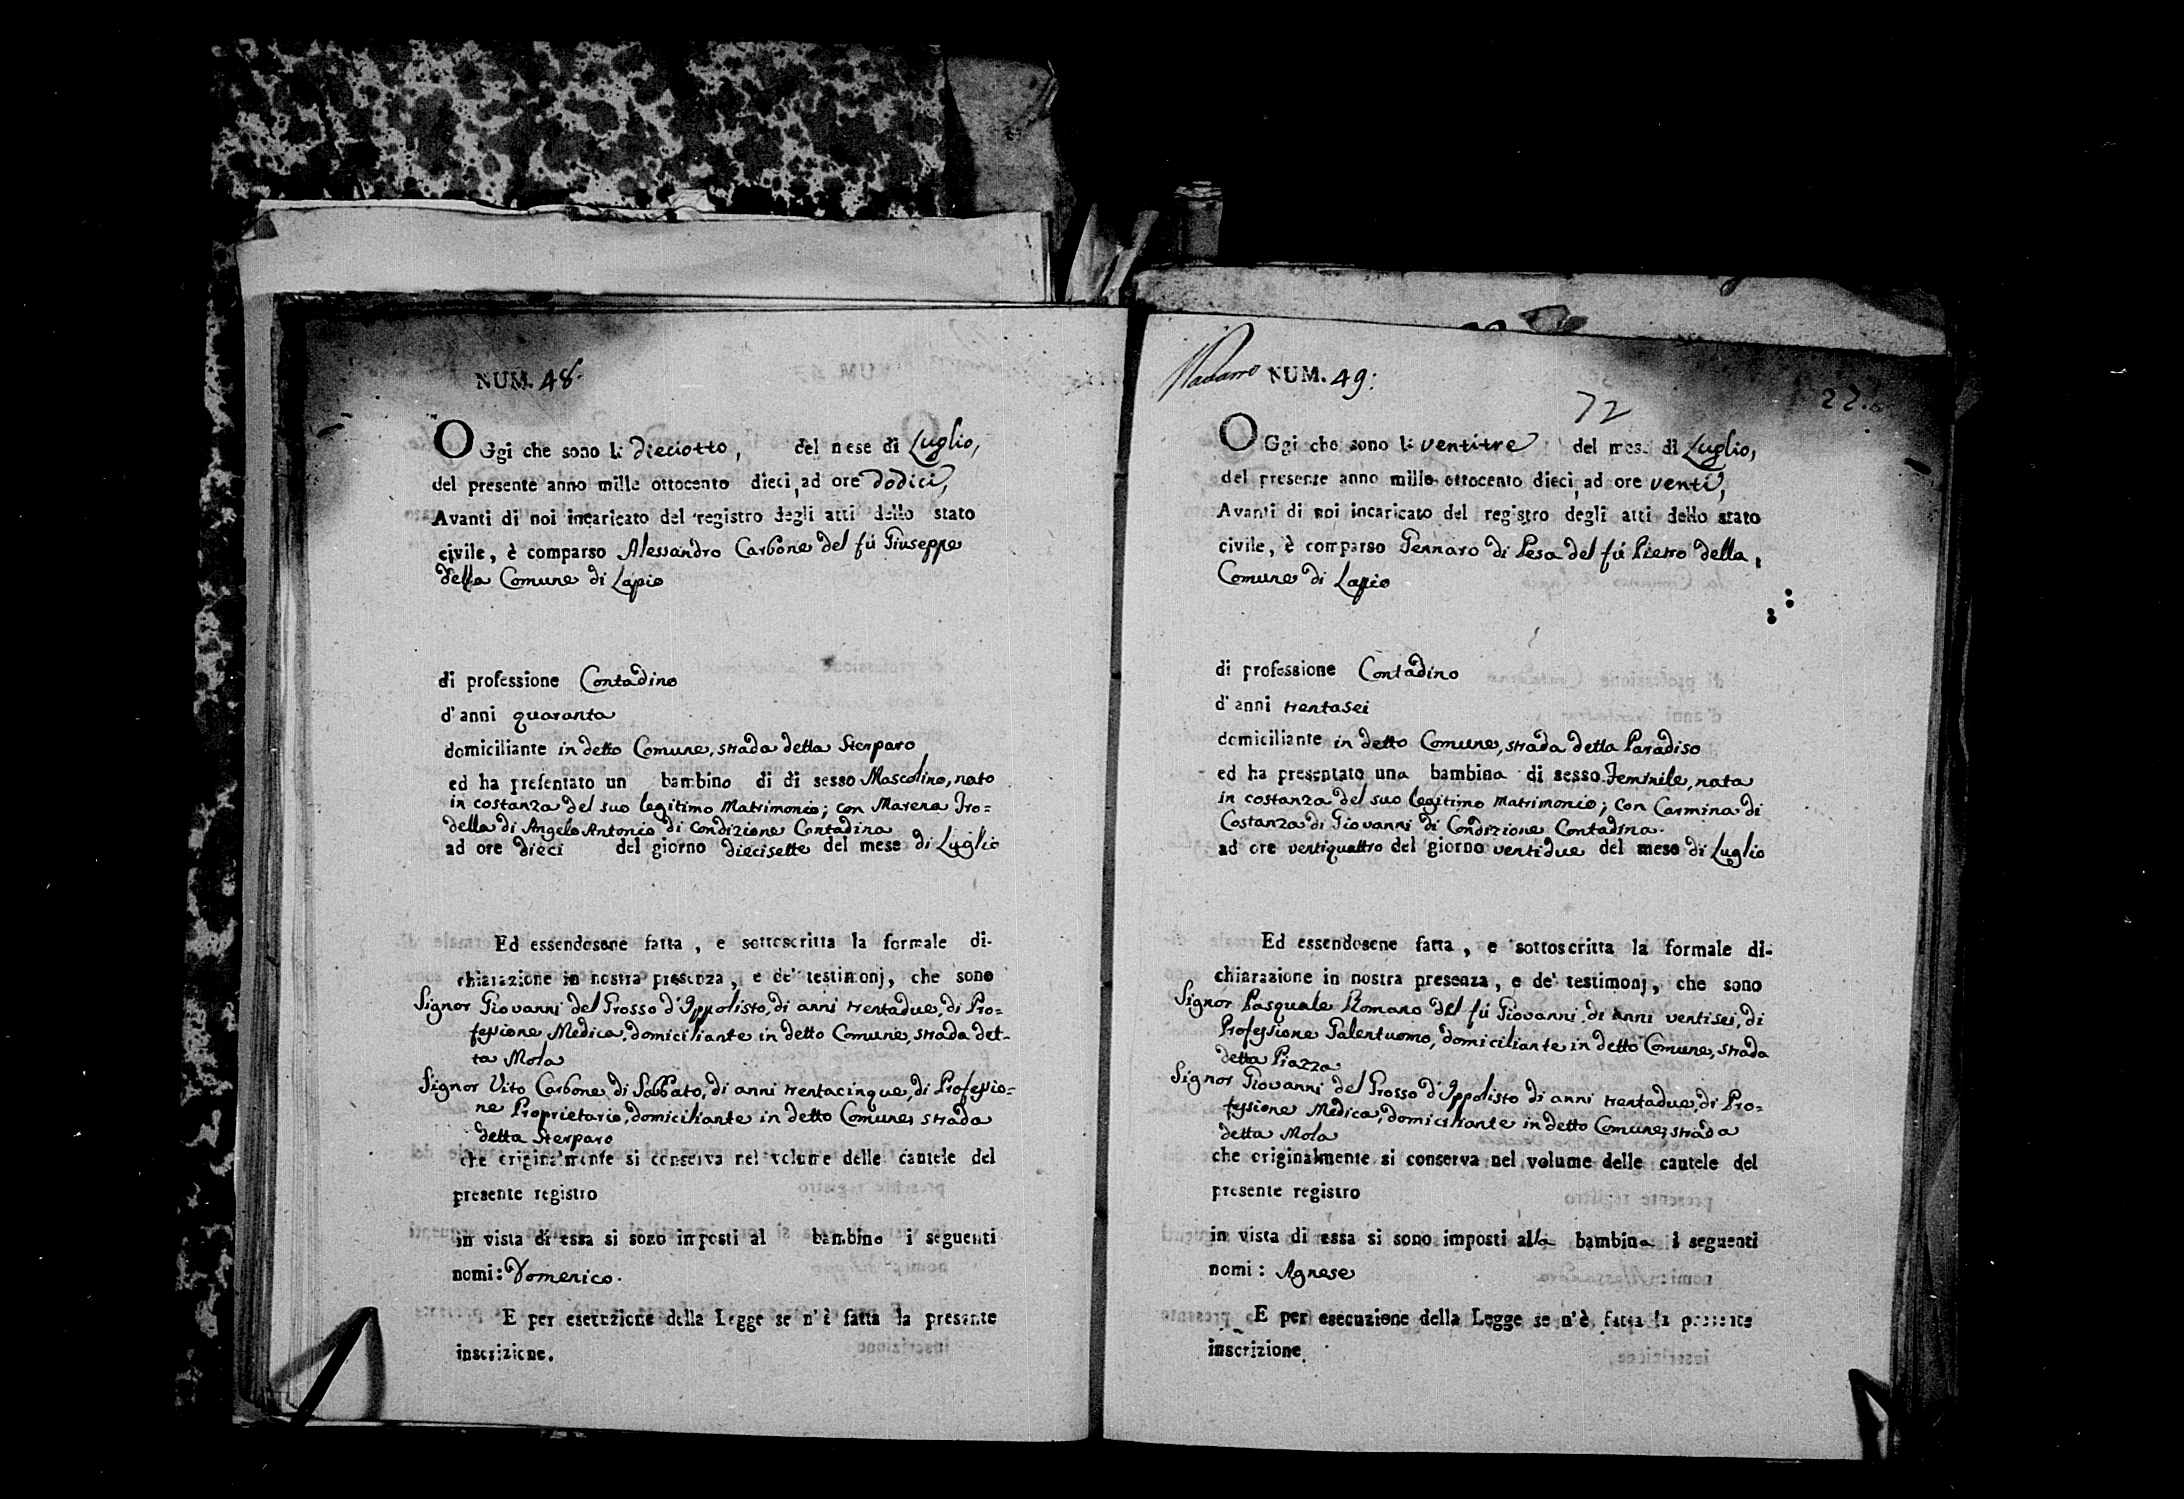 NUM. 48.
OGgi che sono li dieciotto, del mese di Luglio,
del presente anno mille ottocento dieci, ad ore dodici,
Avanti di noi incaricato del registro degli atti dello stato
civile, è comparso Alessandro Carbone del fù Giuseppe
della Comune di Lapio
di professione Contadino
d'anni quaranta
domiciliante in detto Comune, strada detta Sterparo
ed ha presentato un bambino di di sesso Mascolino, nato
in costanza del suo legitimo Matrimonio; con Marena Tro=
della di Angelo Antonio di condizione Contadina
ad ore dieci del giorno diecisette del mese di Luglio
Ed essendosene fatta, e sottoscritta la formale di-
chiarazione in nostra presenza, e de' testimonj, che sono
Signor Giovanni del Grosso d'Ippolisto, di anni trentadue, di Pro=
fessione Medica, domiciliante in detto Comune, strada det-
ta Mola
Signor Vito Carbone di Sabbato, di anni trentacinque, di Professio=
ne Proprietario, domiciliante in detto Comune, strada
detta Sterparo
che originalmente si conserva nel volume delle cautele del
presente registro
in vista di essa si sono imposti al bambino i seguenti
nomi: Domenico.
E per esecuzione della Legge se n'è fatta la presente
inscrizione.
NUM. 49:
72
27.
OGgi che sono li ventitre del mese di Luglio,
del presente anno mille ottocento dieci, ad ore venti,
Avanti di noi incaricato del registro degli atti dello stato
civile, è comparso Gennaro di Pesa del fù Pietro della
Comune di Lapio
di professione Contadino
d'anni trentasei
domiciliante in detto Comune, strada detta Paradiso
ed ha presentato una bambina di sesso Feminile, nata
in costanza del suo legitimo matrimonio; con Carmina di
Costanza di Giovanni di Condizione Contadina.
ad ore ventiquattro del giorno ventidue del mese di Luglio
Ed essendosene fatta, e sottoscritta la formale di-
chiarazione in nostra presenza, e de' testimonj, che sono
Signor Pasquale Romano del fù Giovanni di anni ventisei, di
Professione Galentuomo, domiciliante in detto Comune, strada
detta Piazza
Signor Giovanni del Grosso d'Ippolisto di anni trentadue, di Pro=
fessione Medica, domiciliante in detto Comune, strada
detta Mola
che originalmente si conserva nel volume delle cautele del
presente registro
in vista di essa si sono imposti alla bambina i seguenti
nomi: Agnese
E per esecuzione della Legge se n'è fatta la presente
inscrizione.